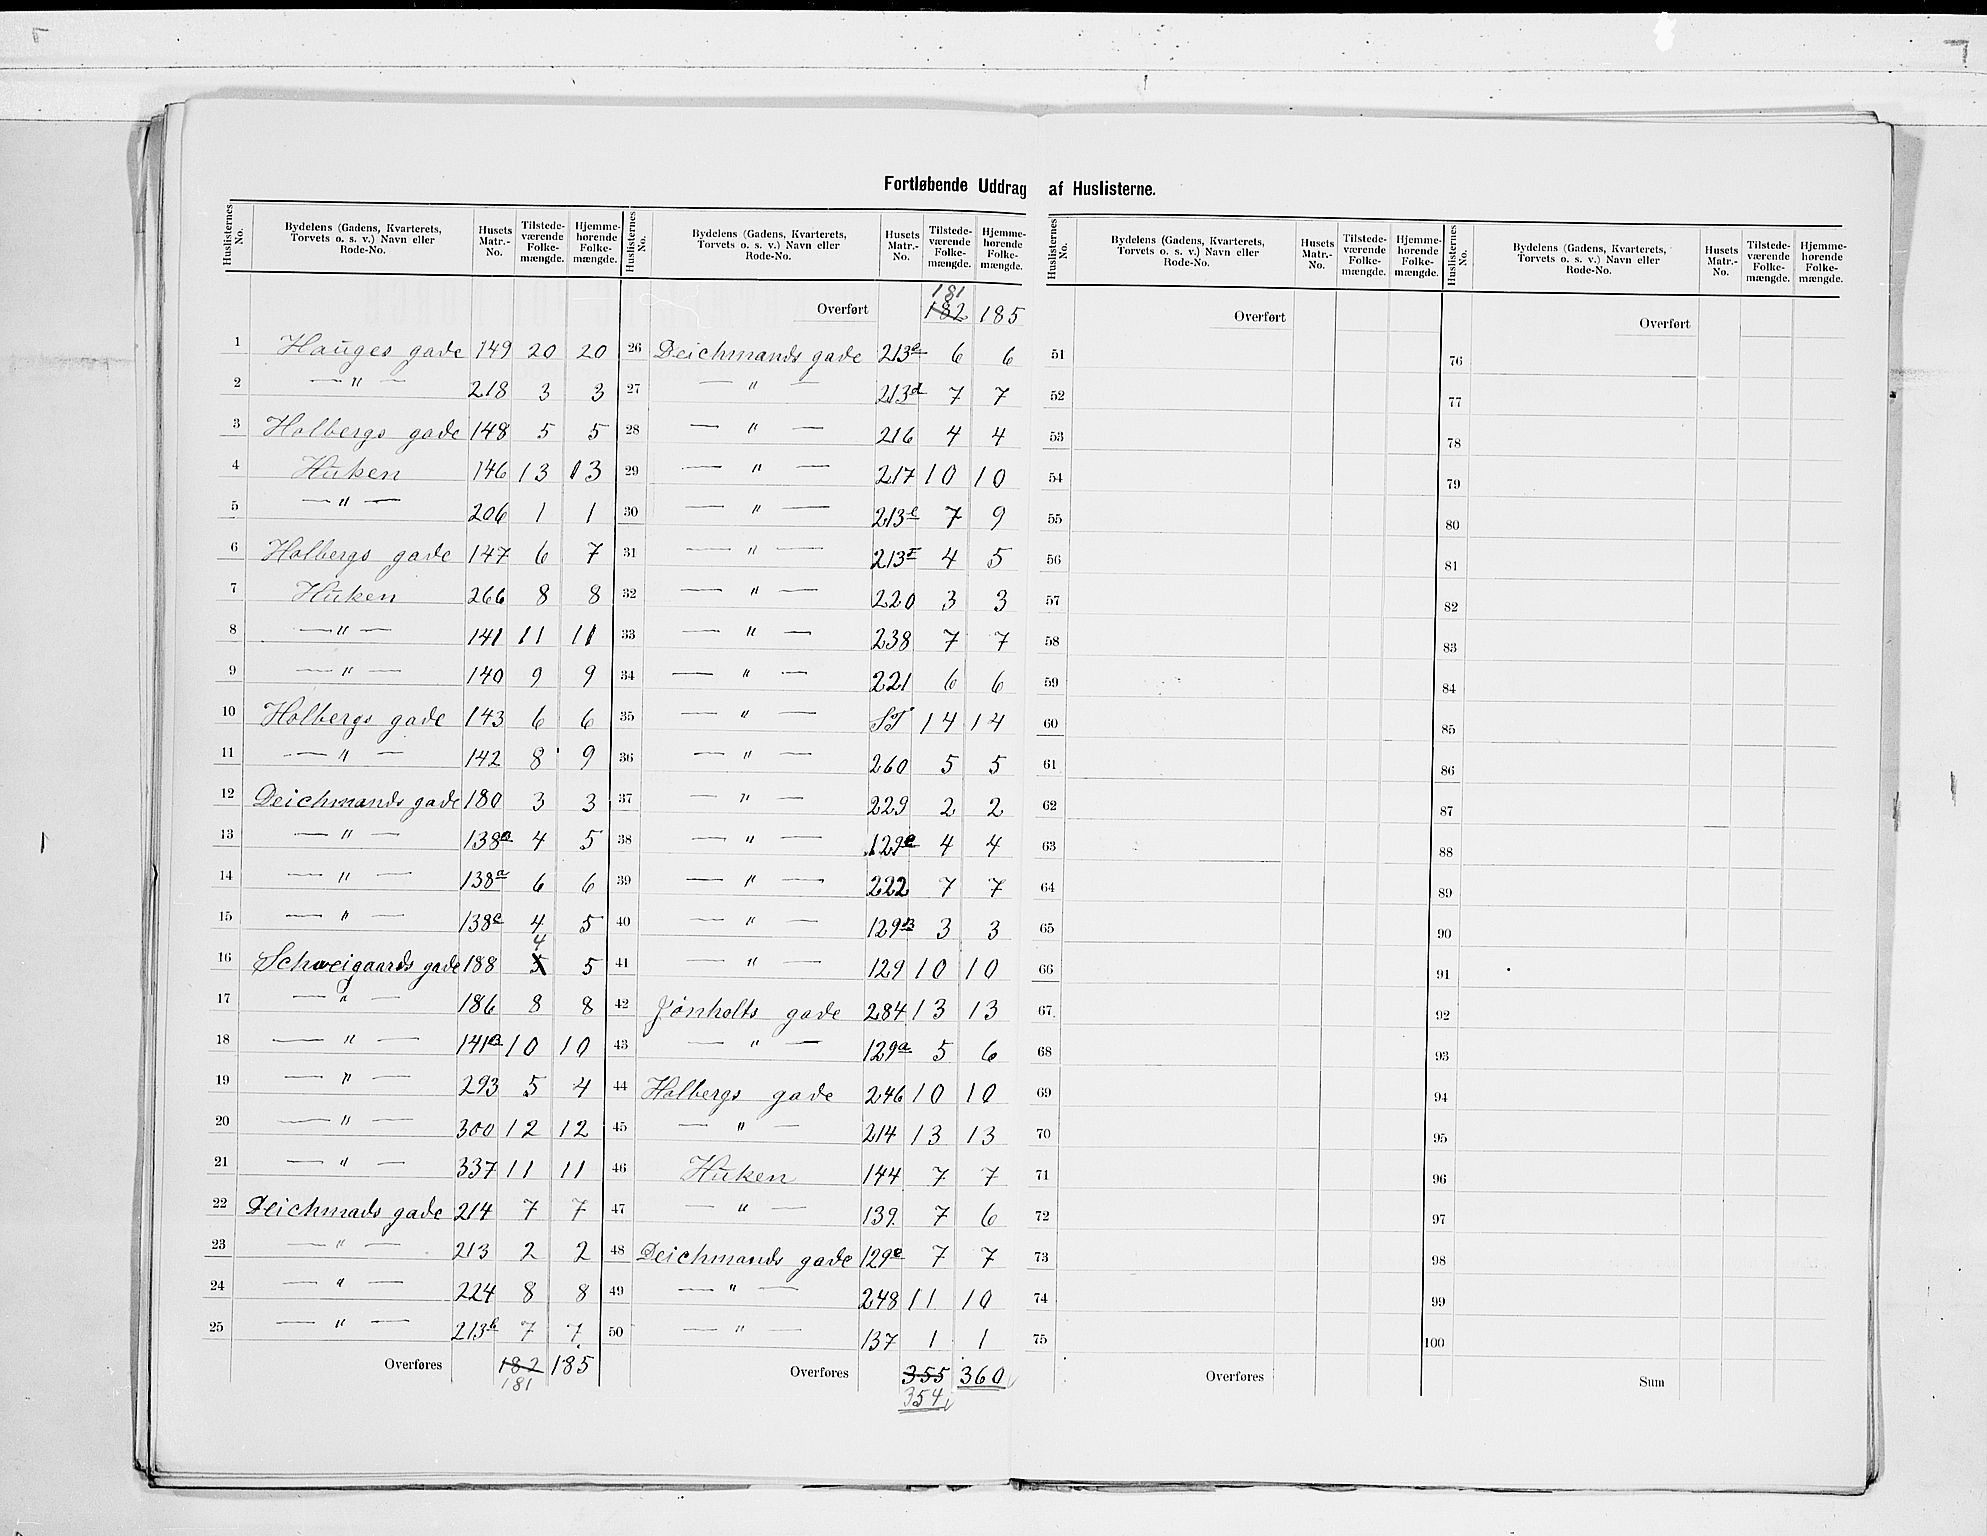 Fortløbende Uddrag af Huslisterne.
Huslisternes No. | Bydelens (Gadens, Kvarterets, Torvets o. s. v.) Navn eller Rode-No. | Husets Matr.-No. | Tilstedeværende Folkemængde. | Hjemmehørende Folkemængde.
1 Hauges gade 149 20 20
2 — " — 218 3 3
3 Holbergs gade 148 5 5
4 Huken 146 13 13
5 — " — 206 1 1
6 Holbergs gade 147 6 7
7 Huken 266 8 8
8 — " — 141 11 11
9 — " — 140 9 9
10 Holbergs gade 143 6 6
11 — " — 142 8 9
12 Deichmands gade 180 3 3
13 — " — 138a 4 5
14 — " — 138a 6 6
15 — " — 138c 4 5
16 Schweigaards gade 188 5 4 5
17 — " — 186 8 8
18 — " — 141a 10 10
19 — " — 293 5 4
20 — " — 300 12 12
21 — " — 337 11 11
22 Deichmads gade 214 7 7
23 — " — 213 2 2
24 — " — 224 8 8
25 — " — 213b 7 7
Overføres 182 185
181
Huslisternes No. | Bydelens (Gadens, Kvarterets, Torvets o. s. v.) Navn eller Rode-No. | Husets Matr.-No. | Tilstedeværende Folkemængde. | Hjemmehørende Folkemængde.
181
Overført 182 185
26 Deichmands gade 213c 6 6
27 — " — 213d 7 7
28 — " — 216 4 4
29 — " — 217 10 10
30 — " — 213e 7 9
31 — " — 213F 4 5
32 — " — 220 3 3
33 — " — 238 7 7
34 — " — 221 6 6
35 — " — ST 14 14
36 — " — 260 5 5
37 — " — 229 2 2
38 — " — 129c 4 4
39 — " — 222 7 7
40 — " — 129B 3 3
41 — " — 129 10 10
42 Jønholts gade 284 13 13
43 — " — 129a 5 6
44 Holbergs gade 246 10 10
45 — " — 214 13 13
46 Huken 144 7 7
47 — " — 139 7 6
48 Deichmands gade 129e 7 7
49 — " — 248 11 10
50 — " — 137 1 1
Overføres 355 360
354
Huslisternes No. | Bydelens (Gadens, Kvarterets, Torvets o. s. v.) Navn eller Rode-No. | Husets Matr.-No. | Tilstedeværende Folkemængde. | Hjemmehørende Folkemængde.
Overført
51
52
53
54
55
56
57
58
59
60
61
62
63
64
65
66
67
68
69
70
71
72
73
74
75
Overføres
Huslisternes No. | Bydelens (Gadens, Kvarterets, Torvets o. s. v.) Navn eller Rode-No. | Husets Matr.-No. | Tilstedeværende Folkemængde. | Hjemmehørende Folkemængde.
Overført
76
77
78
79
80
81
82
83
84
85
86
87
88
89
90
91
92
93
94
95
96
97
98
99
100
Sum